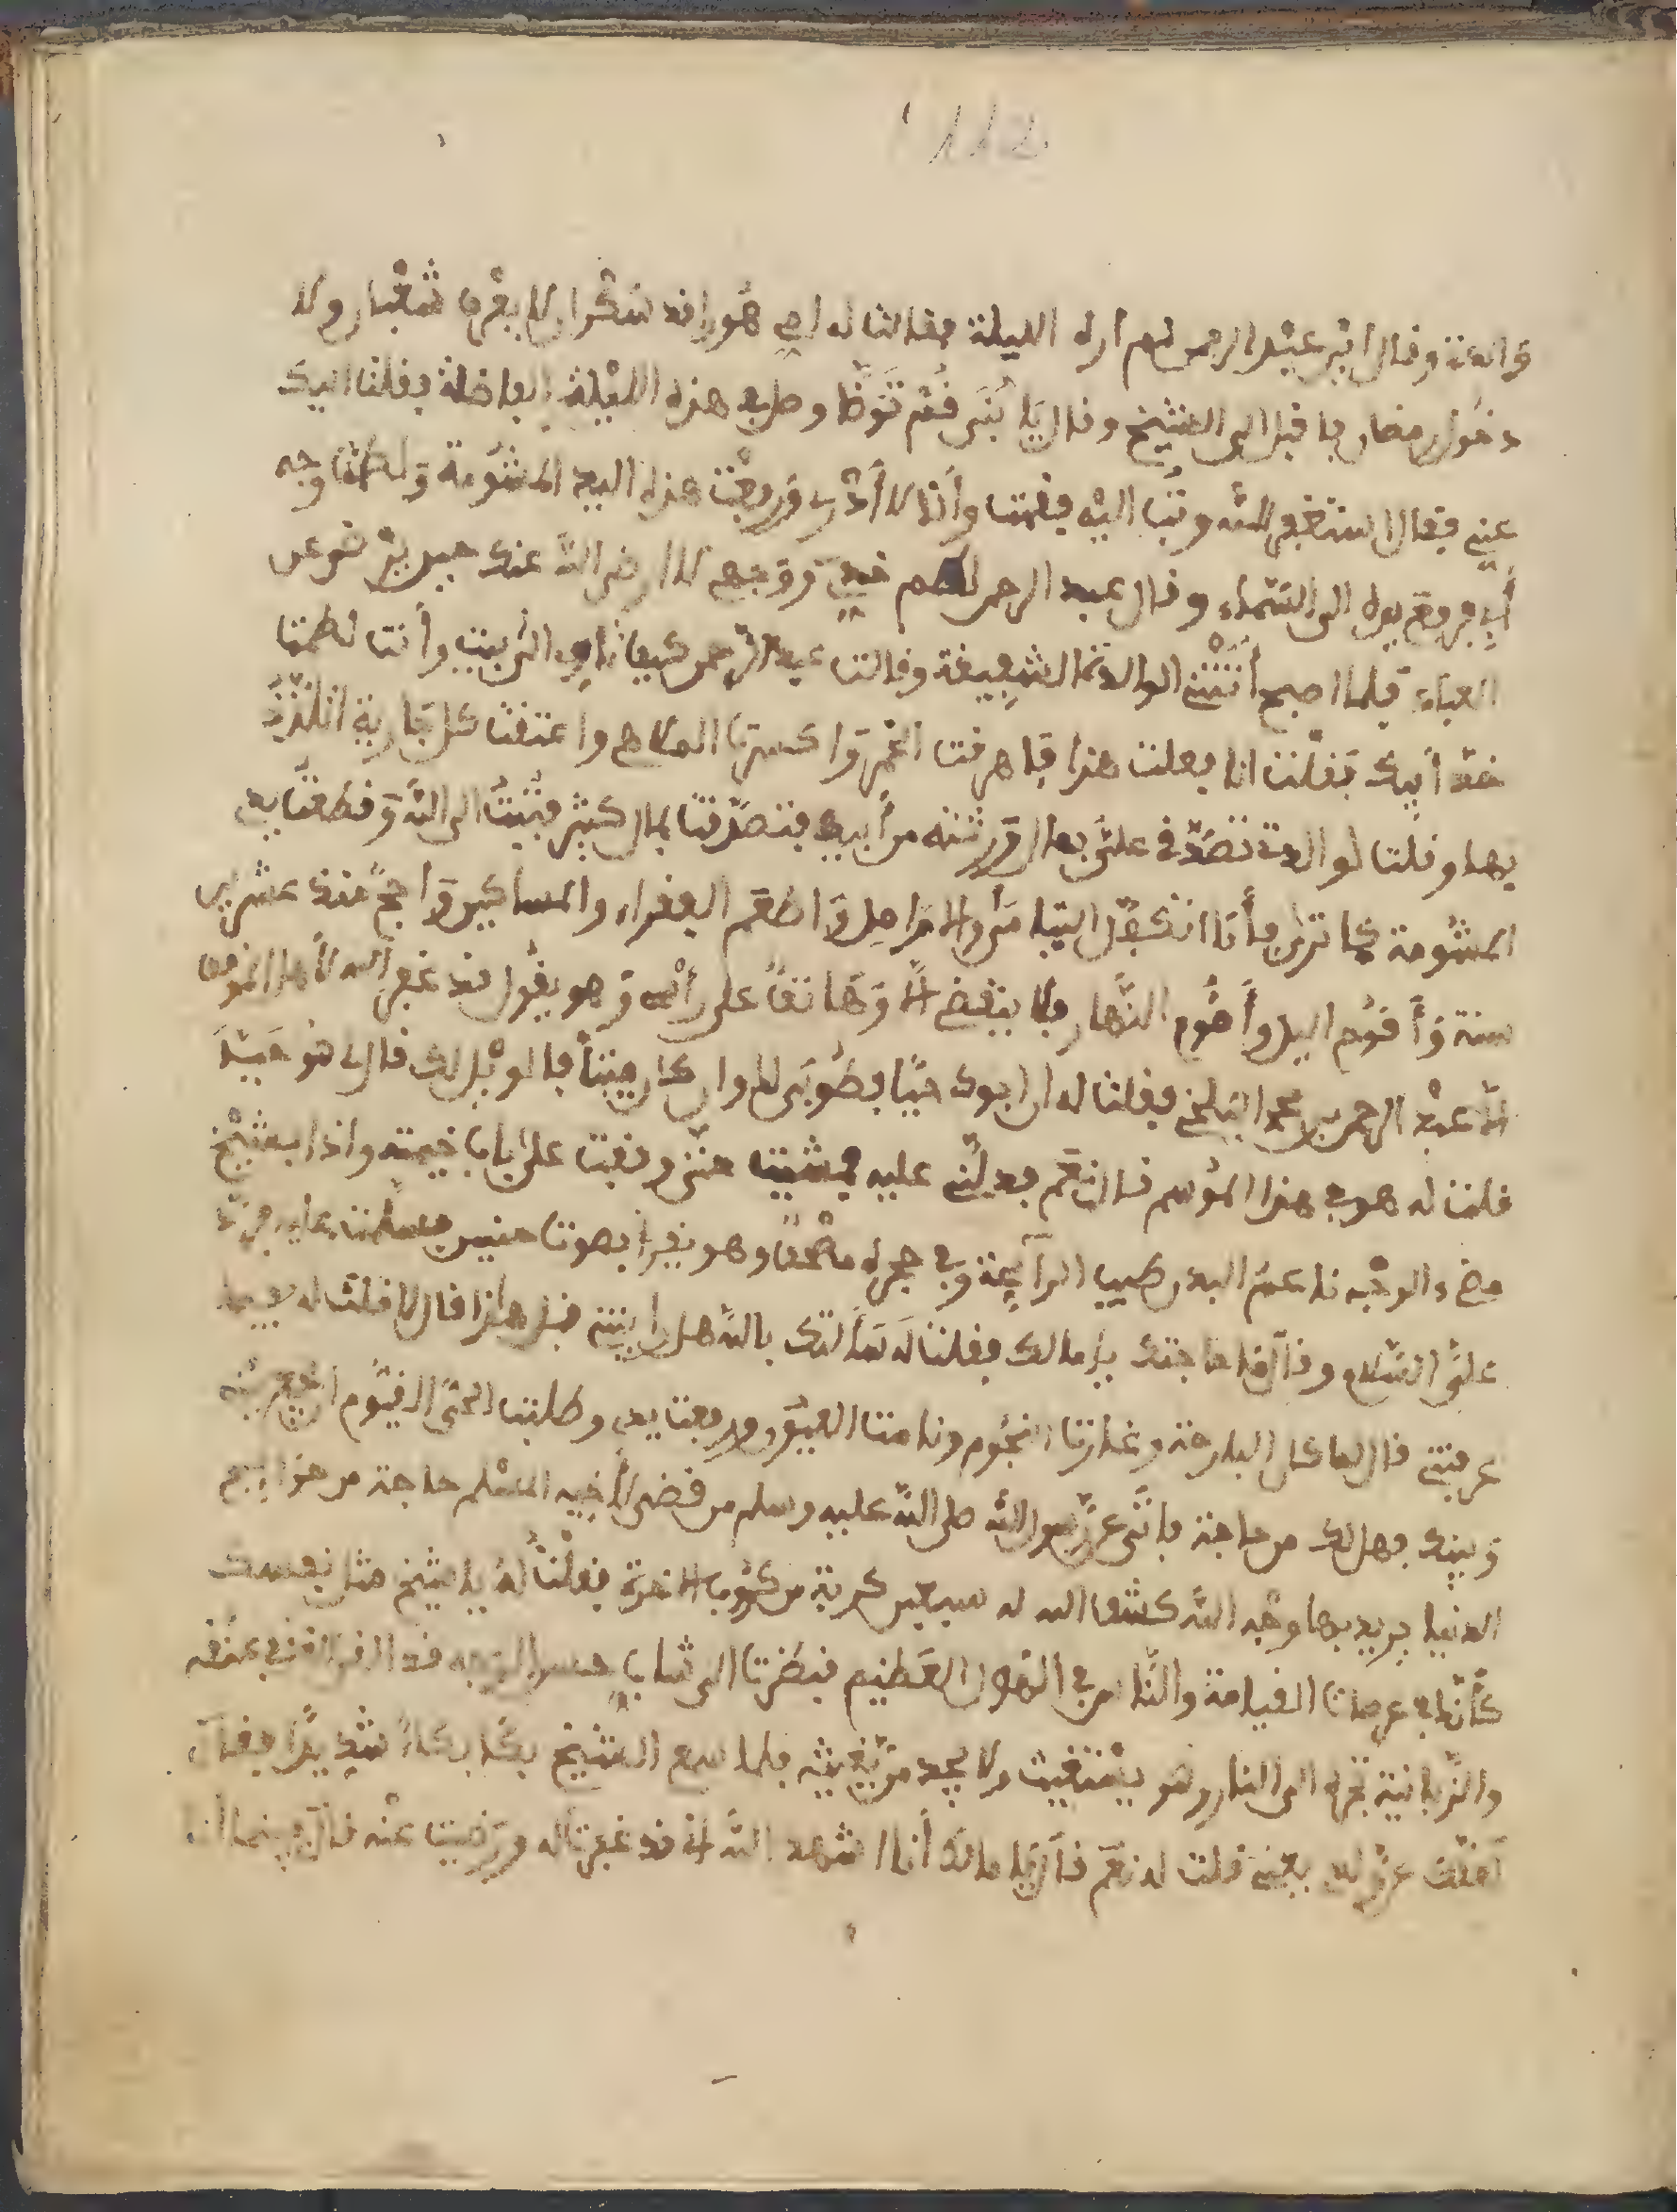 112
والدته وقال اين عبد الرحمن لم اره الليلة فقالت له امي هو راقد سكران لا يعرف شعبان ولا
دخول رمضان فاقبل الي الشيخ وقال يا بني قم توضا وصل هذه الليلة الفاضلة فقلت اليك
عني فقال استغفر الله وتب اليه فقمت وأنا لا أدري ورفعت هذه اليد المشومة ولطمت وجه
أبي فرفع يده الى السماء وقال عبد الرحمن لطم خدي ووجهي لا رضي الله عنك حين يرضى عن
العباد فلما اصبح أتتني الوالدة الشفيقة وقالت عبد الرحمن كيف انت وأنت لطمت
خد أبيك فقلت انا فعلت هذا فاهرقت الخمر واكسرت الملاهي واعتقت كل جارية اتلذذ
بها وقلت لوالدتي تصدقي علي بمال ورثته من أبيك فتصدقت بمال كثير فتبت الى الله وقطعت يدي
المشومة كما ترى فأنا اتكفل اليتامى والارامل واطعم الفقراء والمساكين واحج منذ عشرين
سنة وأقوم اليل وأصوم النهار فلا ينقضي الا وهاتف على رأسي وهو يقول قد غفر الله لأهل الموقف
الا عبد الرحمن بن محمد البلخي فقلت له ان ابوك حيا فطوبى لك وان كان ميتا فالويل لك قال هو حي
قلت له هو في هذا الموسم قال نعم فدلني عليه فمشيت حتى وقفت على باب خيمته واذا بشيخ
مضيء الوجه ناعم اليد طيب الرآيحة وفي حجره مصحف وهو يقرأ بصوت حنين فسلمت عليه فرد
علي السلام وقال ما حاجتك يا مالك فقلت له سألتك بالله هل رايتني قبل هذا قال لا قلت له فبما
عرفتني قال لما كان البارحة وغارت النجوم ونامت العيون ورفعت يدي وطلبت الحي القيوم ان يجمع بيني
وبينك فهل لك من حاجة فاني عن رسول الله صلى الله عليه وسلم من قضى لأخيه المسلم حاجة من حوايج
الدنيا يريد بها وجه الله كشف الله له سبعين كربة من كروب الاخرة فقلت له يا شيخ مثل نفسك
كأنك في عرصات القيامة والناس في الهول العظيم فنظرت الى شاب حسن الوجه قد في عنقه
والزبانية تجره الى النار وهو يستغيث ولا يجد من يغيثه فلما سمع الشيخ بكا بكاء شديدا فقال
قلت له نعم قال يا مالك أنا اشهد الله اني قد غفرت له ورضيت عنه قال